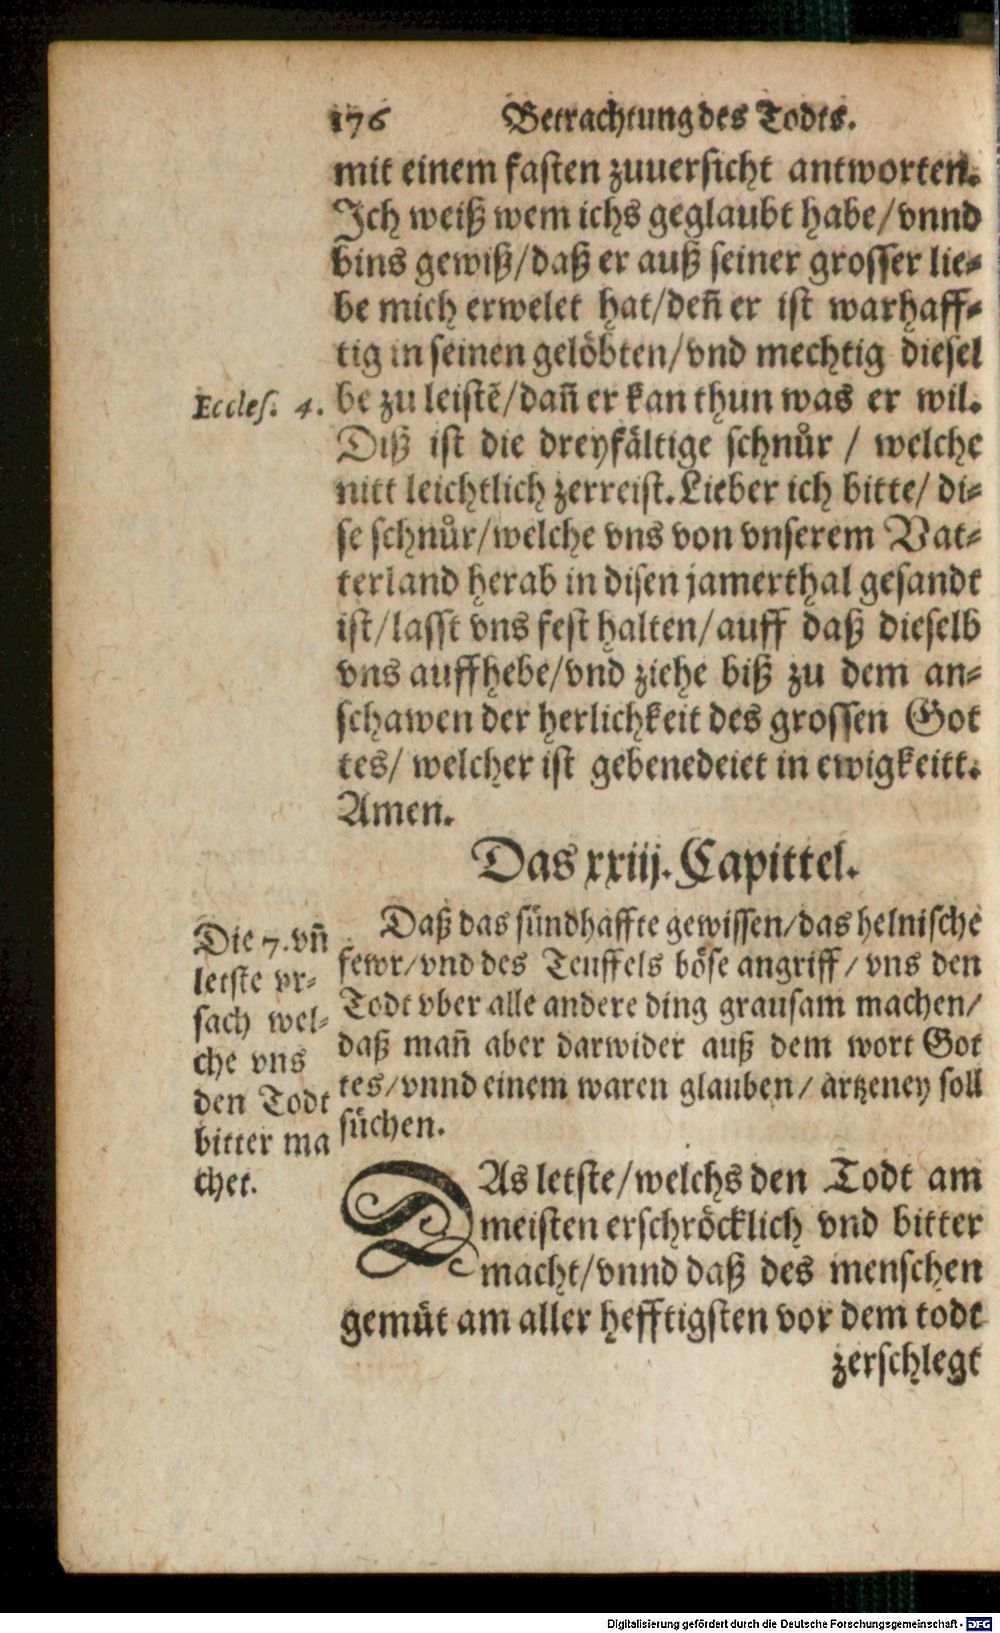 176 Betrachtung des Todts.
mit einem fasten zuuersicht antworten.
Ich weiß wem ichs geglaubt habe/vnnd
bins gewiß/daß er auß seiner grosser lie⸗
be mich erwelet hat/den̄ er ist warhaff⸗
tig in seinen gelöbten/vnd mechtig diesel
Eccles. 4.
be zu leistē/dan̄ er kan thun was er wil.
Diß ist die dreyfältige schnůr / welche
nitt leichtlich zerreist. Lieber ich bitte/ di⸗
se schnůr/welche vns von vnserem Vat⸗
terland herab in disen jamerthal gesandt
ist/lasst vns fest halten/auff daß dieselb
vns auffhebe/vnd ziehe biß zu dem an⸗
schawen der herlichkeit des grossen Got
tes/ welcher ist gebenedeiet in ewigkeitt.
Amen.
Das xxiij. Capittel.
Daß das sündhaffte gewissen/das helnische
fewr/vnd des Teuffels böse angriff/ vns den
Todt vber alle andere ding grausam machen/
daß man̄ aber darwider auß dem wort Got
tes/vnnd einem waren glauben/ artzeney soll
süchen.
Die 7. vn̄
letste vr⸗
sach wel⸗
che vns
den Todt
bitter ma
chet.
DAs letste/welchs den Todt am
meisten erschröcklich vnd bitter
macht/vnnd daß des menschen
gemüt am aller hefftigsten vor dem todt
zerschlegt
Digitalisierung gefördert durch die Deutsche Forschungsgemeinschaft - DFG